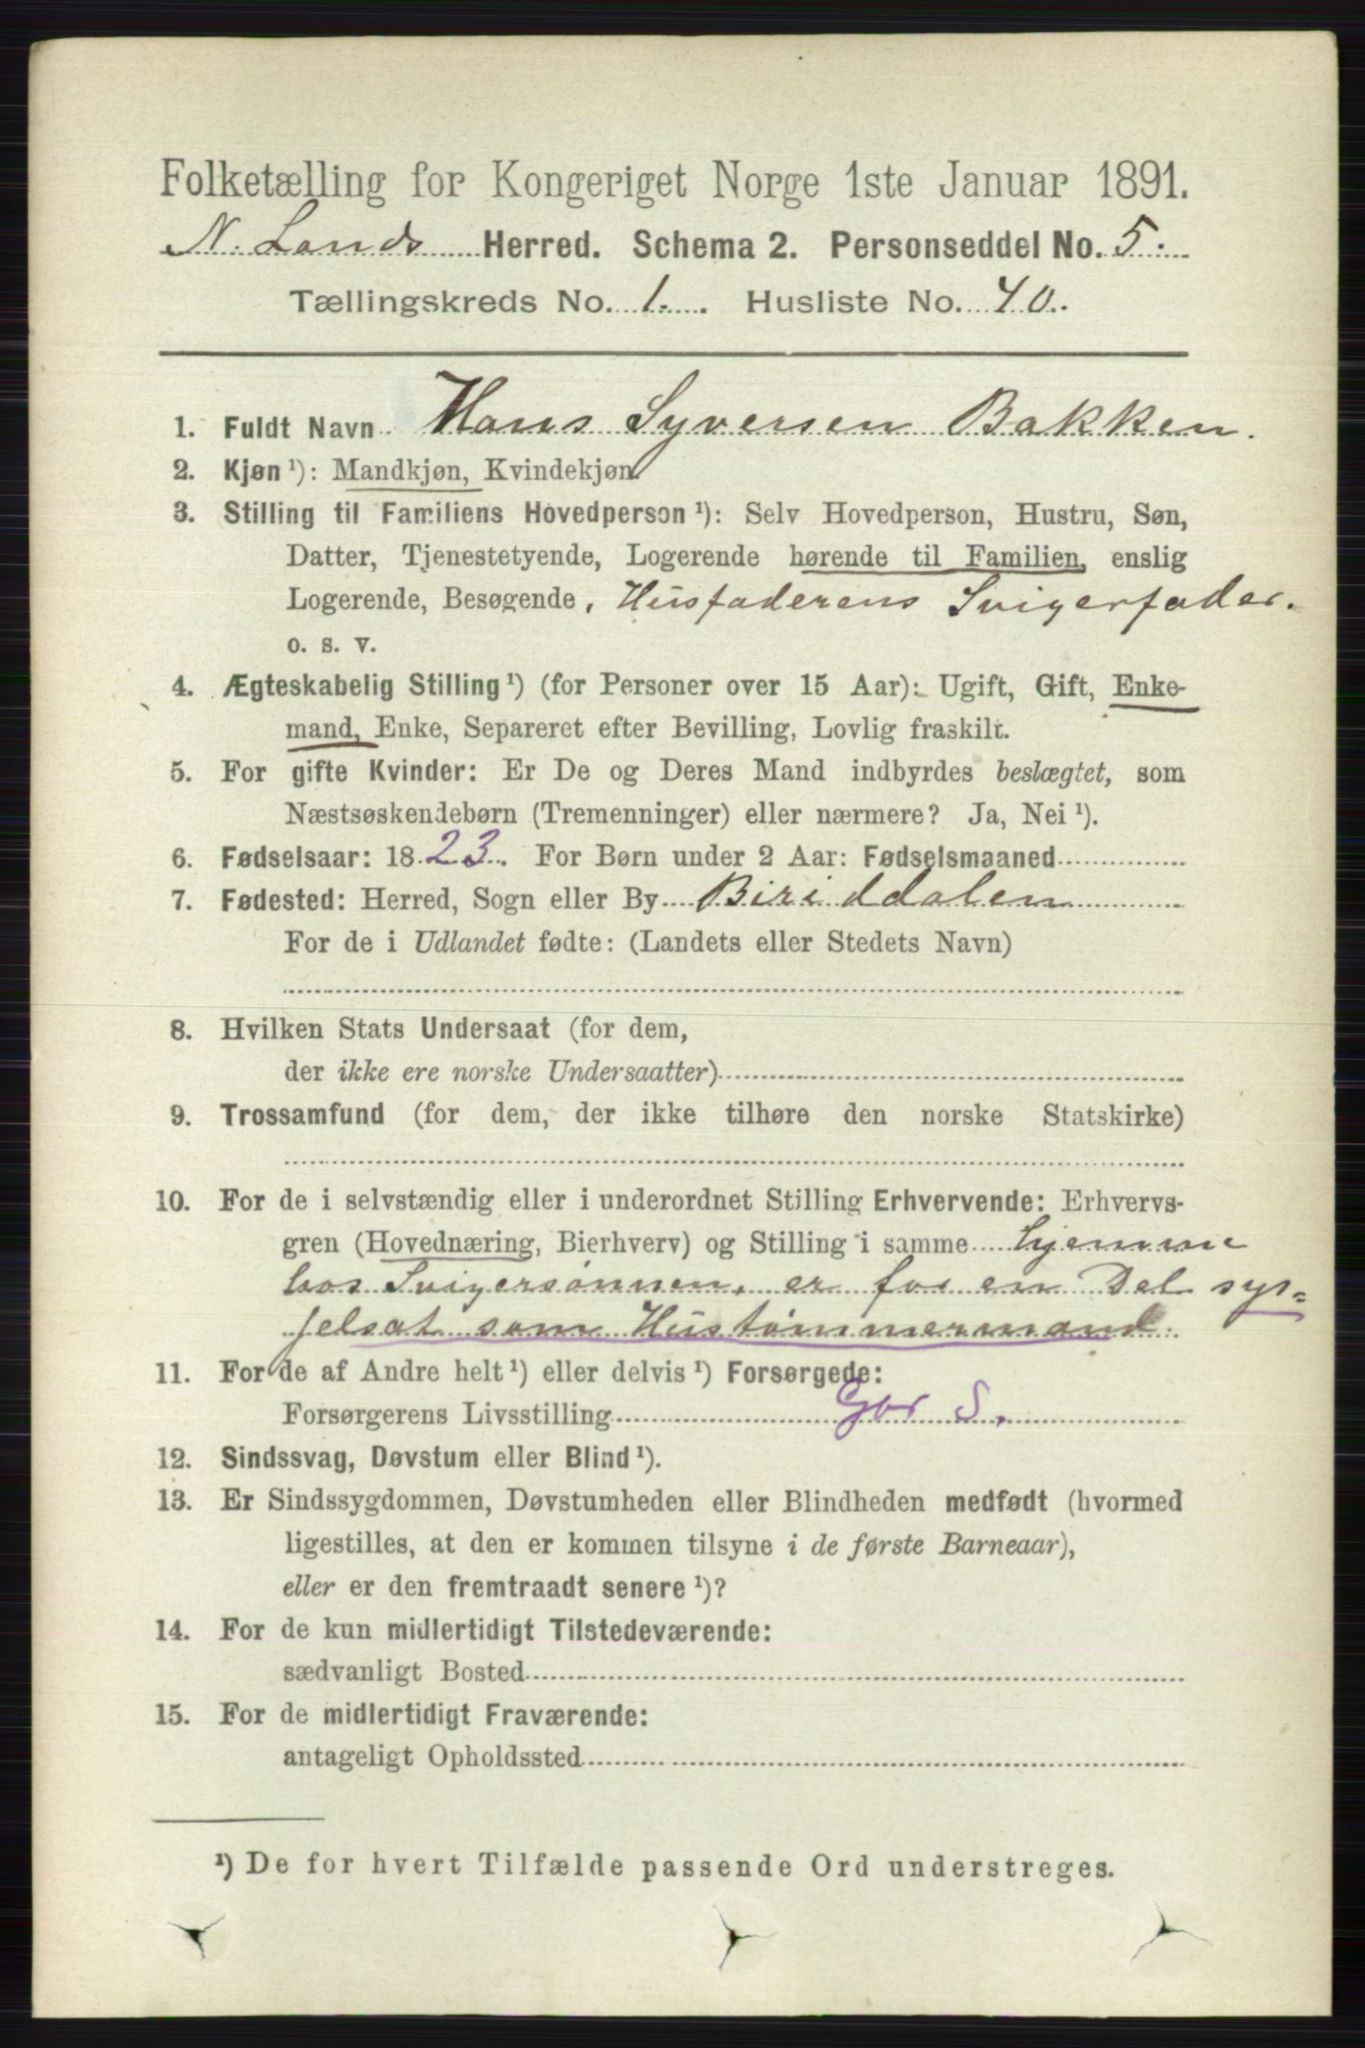 Folketælling for Kongeriget Norge 1ste Januar 1891.
N. Lands Herred. Schema 2. Personseddel No. 5.
Tællingskreds No. 1. Husliste No. 40.
1. Fuldt Navn Hans Syversen Bakken.
2. Kjøn ¹): Mandkjøn, Kvindekjøn.
3. Stilling til Familiens Hovedperson ¹): Selv Hovedperson, Hustru, Søn,
Datter, Tjenestetyende, Logerende hørende til Familien, enslig
Logerende, Besøgende, Husfaderens Svigerfader.
o. s. v.
4. Ægteskabelig Stilling ¹) (for Personer over 15 Aar): Ugift, Gift, Enke-
mand, Enke, Separeret efter Bevilling, Lovlig fraskilt.
5. For gifte Kvinder: Er De og Deres Mand indbyrdes beslægtet, som
Næstsøskendebørn (Tremenninger) eller nærmere? Ja, Nei ¹).
6. Fødselsaar: 1823. For Børn under 2 Aar: Fødselsmaaned
7. Fødested: Herred, Sogn eller By Biriddalen
For de i Udlandet fødte: (Landets eller Stedets Navn)
8. Hvilken Stats Undersaat (for dem,
der ikke ere norske Undersaatter)
9. Trossamfund (for dem, der ikke tilhøre den norske Statskirke)
10. For de i selvstændig eller i underordnet Stilling Erhvervende: Erhvervs-
gren (Hovednæring, Bierhverv) og Stilling i samme hjemme
hos Svigersønnen, er for en Del sys=
jelsat som Hustømmermand.
11. For de af Andre helt ¹) eller delvis ¹) Forsørgede:
Forsørgerens Livsstilling Gbr S.
12. Sindssvag, Døvstum eller Blind ¹).
13. Er Sindssygdommen, Døvstumheden eller Blindheden medfødt (hvormed
ligestilles, at den er kommen tilsyne i de første Barneaar),
eller er den fremtraadt senere ¹)?
14. For de kun midlertidigt Tilstedeværende:
sædvanligt Bosted
15. For de midlertidigt Fraværende:
antageligt Opholdssted
¹) De for hvert Tilfælde passende Ord understreges.